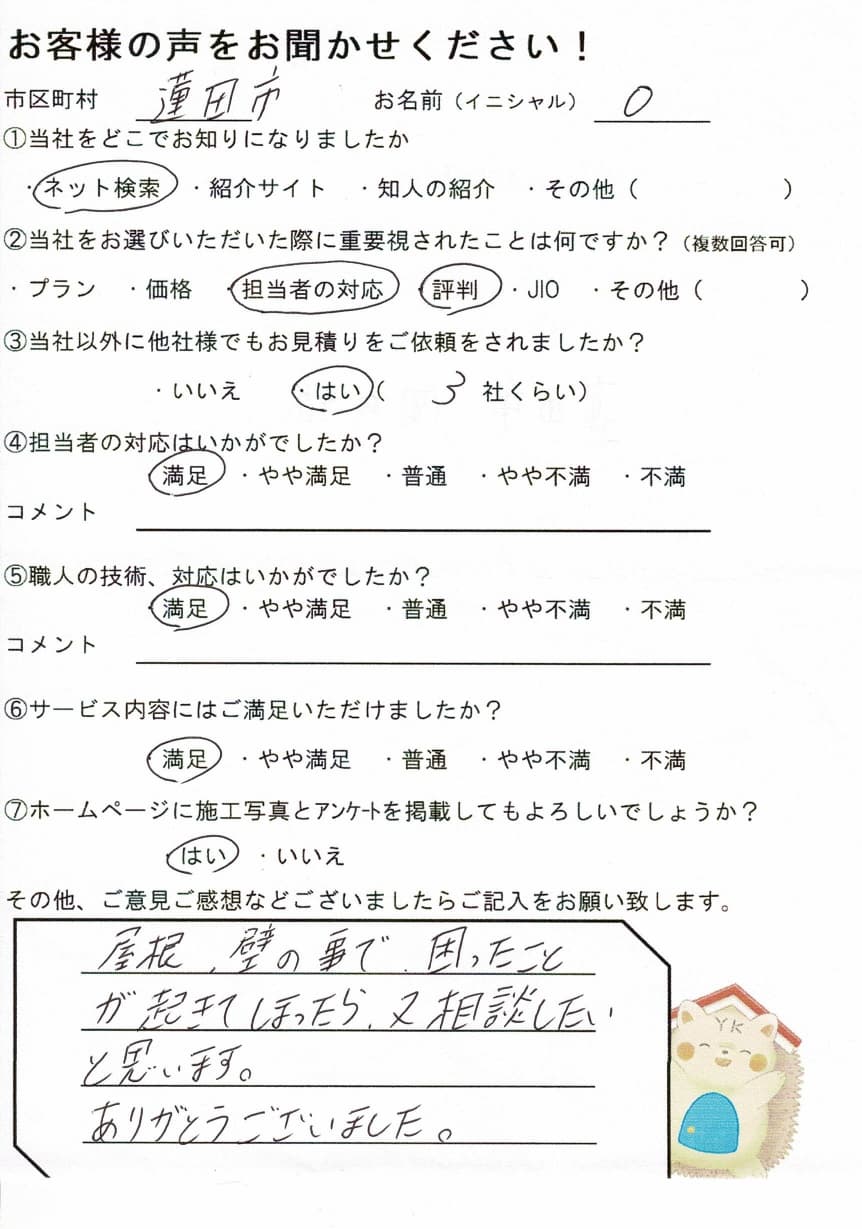 お客様の声をお聞かせください！
市区町村 蓮田市 お名前（イニシャル） O
①当社をどこでお知りになりましたか
・ネット検索 ・紹介サイト ・知人の紹介 ・その他（ ）
②当社をお選びいただいた際に重要視されたことは何ですか？（複数回答可）
・プラン ・価格 ・担当者の対応 ・評判 ・JIO ・その他（ ）
③当社以外に他社様でもお見積りをご依頼をされましたか？
・いいえ ・はい（ 3 社くらい）
④担当者の対応はいかがでしたか？
・満足 ・やや満足 ・普通 ・やや不満 ・不満
コメント
⑤職人の技術、対応はいかがでしたか？
・満足 ・やや満足 ・普通 ・やや不満 ・不満
コメント
⑥サービス内容にはご満足いただけましたか？
・満足 ・やや満足 ・普通 ・やや不満 ・不満
⑦ホームページに施工写真とｱﾝｹｰﾄを掲載してもよろしいでしょうか？
・はい ・いいえ
その他、ご意見ご感想などございましたらご記入をお願い致します。
屋根、壁の事で、困ったこと
が起きてしまったら、又相談したい
と思います。
ありがとうございました。
YK